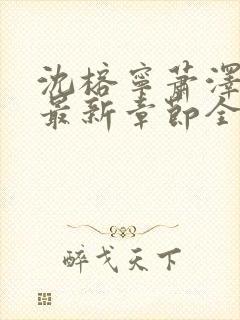 沈榕寧萧泽
最新章節全
醉戈天下